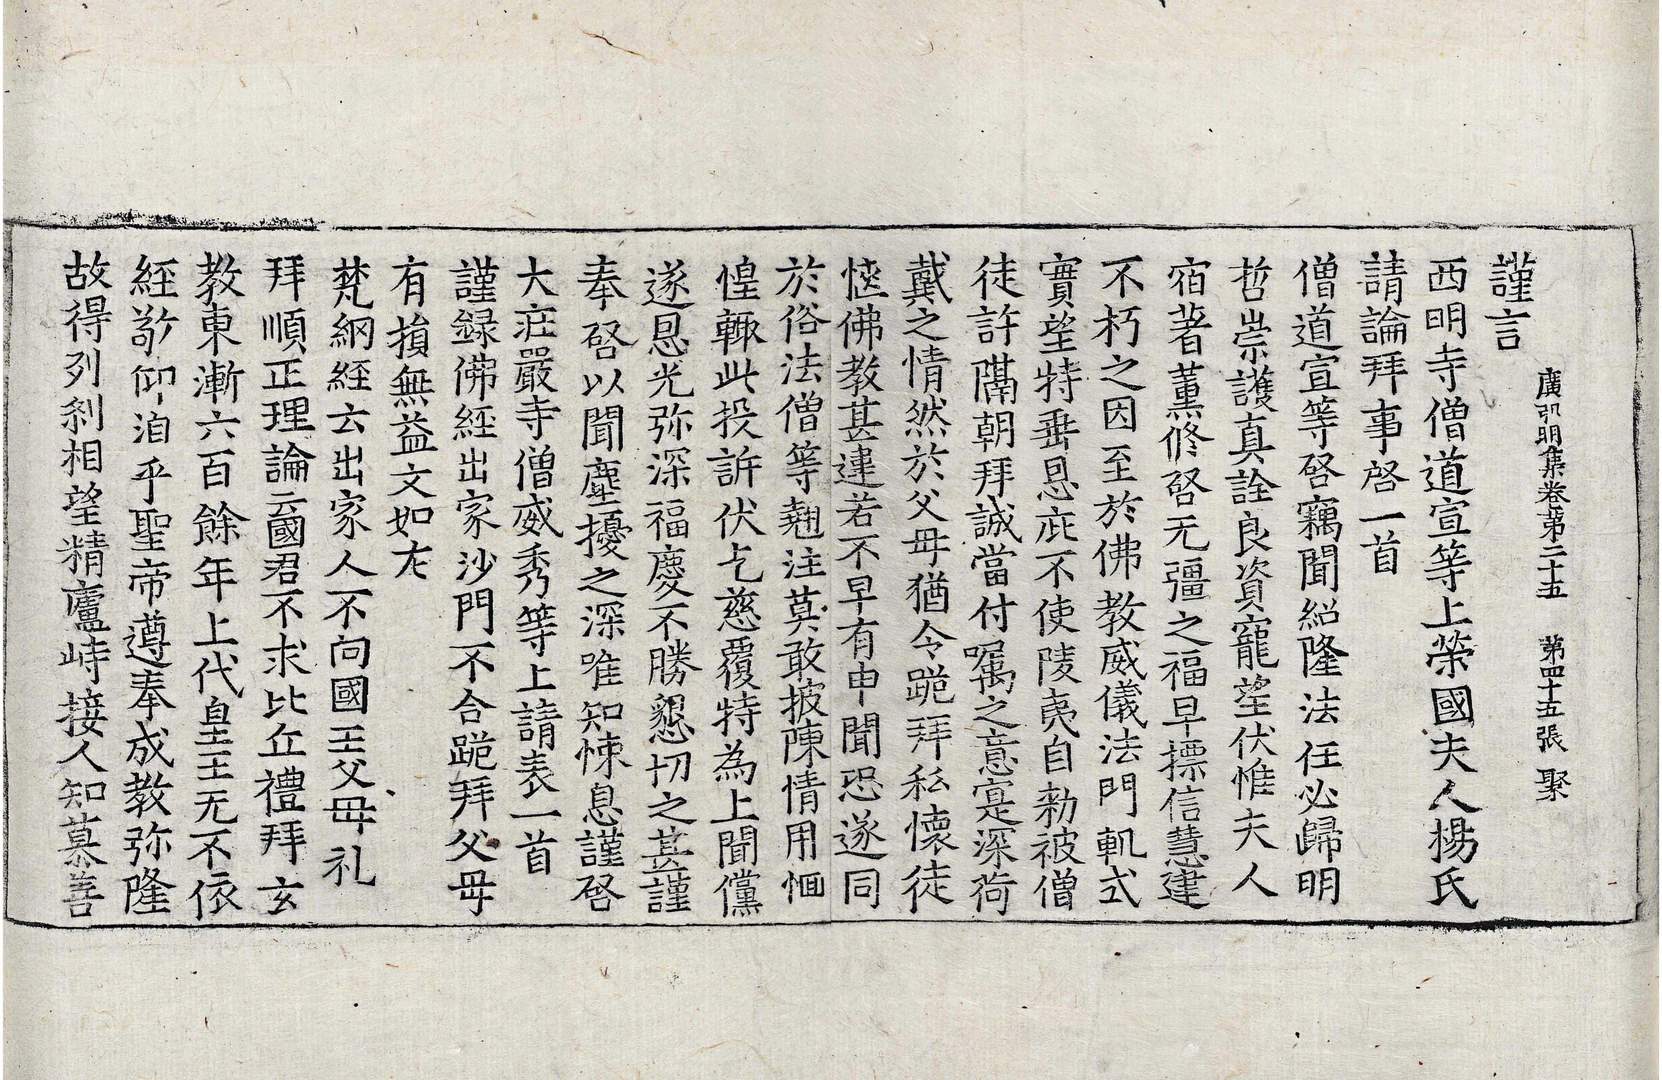 謹言
廣弘明集卷第二十五 第四十五張 聚
西明寺僧道宣等上榮國夫人楊氏
請論拜事啓一首
僧道宣等啓竊聞紹隆法任必歸明
哲崇護真詮良資寵望伏惟夫人
宿著薰修啓无彊之福早摽信慧建
不朽之因至於佛教威儀法門軌式
實望特垂恩庇不使陵夷自勑被僧
徒許隔朝拜誠當付囑之意寔深荷
戴之情然於父母猶令跪拜私懷徒
愜佛教甚違若不早有申聞恐遂同
於俗法僧等翹注莫敢披陳情用恛
惶輙此投訴伏乞慈覆特為上聞儻
遂恩光弥深福慶不勝懇切之甚謹
奉啓以聞塵擾之深唯知悚息謹啓
大莊嚴寺僧威秀等上請表一首
謹録佛經出家沙門不合跪拜父母
有損無益文如左
梵網經云出家人不向國王父母礼
拜順正理論云國君不求比丘禮拜玄
教東漸六百餘年上代皇王无不依
經敬仰洎乎聖帝遵奉成教弥隆
故得列刹相望精廬峙接人知慕善